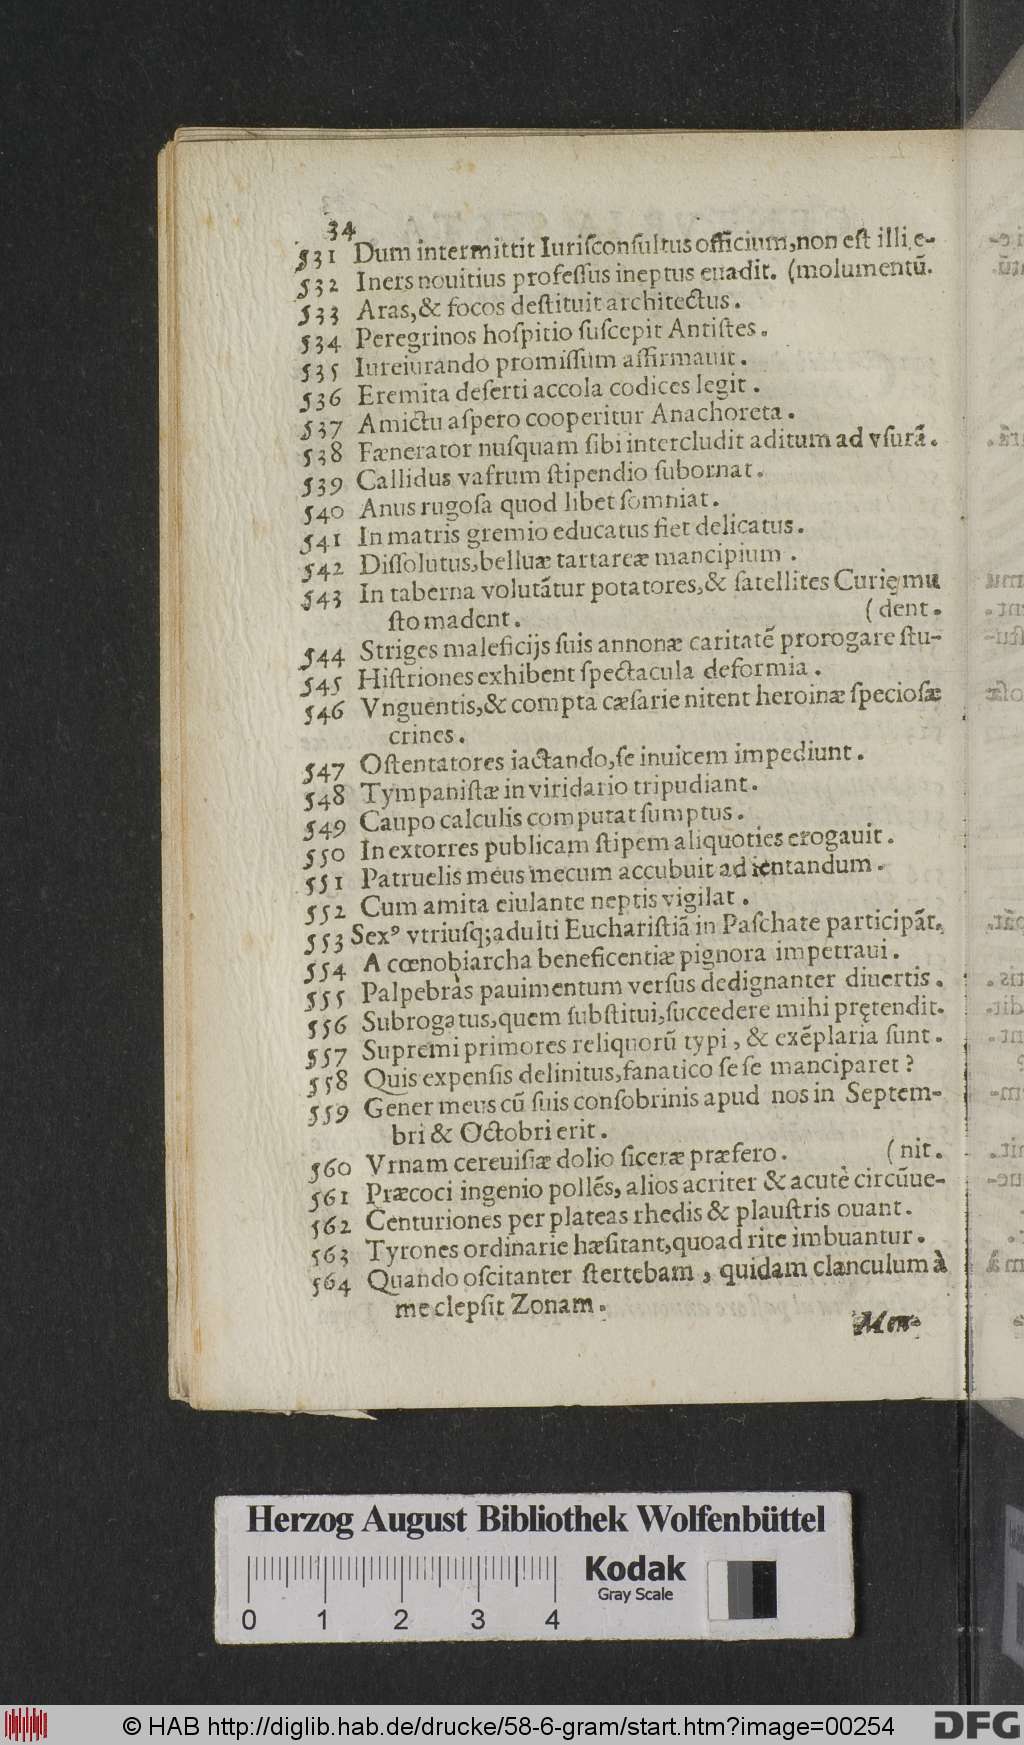 34
531 Dum intermittit Iuriſconſultus officium,non eſt illi e-
532 Iners nouitius profeſſus ineptus euadit. (molumentũ.
533 Aras,& focos deſtituit architectus.
534 Peregrinos hoſpitio ſuſcepit Antiſtes.
535 Iureiurando promiſſum affirmauit.
536 Eremita deſerti accola codices legit.
537 Amictu aſpero cooperitur Anachoreta.
538 Fænerator nuſquam ſibi intercludit aditum ad vſurã.
539 Callidus vafrum ſtipendio ſubornat.
540 Anus rugoſa quod libet ſomniat.
541 In matris gremio educatus fiet delicatus.
542 Diſſolutus,belluæ tartareæ mancipium.
543 In taberna volutãtur potatores,& ſatellites Curię mu
ſto madent. (dent.
544 Striges maleficijs ſuis annonæ caritatẽ prorogare ſtu-
545 Hiſtriones exhibent ſpectacula deformia.
546 Vnguentis,& compta cæſarie nitent heroinæ ſpecioſæ
crines.
547 Oſtentatores iactando,ſe inuicem impediunt.
548 Tympaniſtæ in viridario tripudiant.
549 Caupo calculis computat ſumptus.
550 In extorres publicam ſtipem aliquoties erogauit.
551 Patruelis meus mecum accubuit ad ientandum.
552 Cum amita eiulante neptis vigilat.
553 Sexꝰ vtriuſq;adulti Euchariſtiã in Paſchate participãt.
554 A cœnobiarcha beneficentiæ pignora impetraui.
555 Palpebras pauimentum verſus dedignanter diuertis.
556 Subrogatus,quem ſubſtitui,ſuccedere mihi prętendit.
557 Supremi primores reliquorũ typi, & exẽplaria ſunt.
558 Quis expenſis delinitus,fanatico ſe ſe manciparet?
559 Gener meus cũ ſuis conſobrinis apud nos in Septem-
bri & Octobri erit.
560 Vrnam cereuiſiæ dolio ſiceræ præfero. (nit.
561 Præcoci ingenio pollẽs, alios acriter & acutè circũue-
562 Centuriones per plateas rhedis & plauſtris ouant.
563 Tyrones ordinarie hæſitant,quoad rite imbuantur.
564 Quando oſcitanter ſtertebam, quidam clanculum à
me clepſit Zonam.
Mon-
Herzog August Bibliothek Wolfenbüttel
Kodak
Gray Scale
0 1 2 3 4
© HAB http://diglib.hab.de/drucke/58-6-gram/start.htm?image=00254
DFG